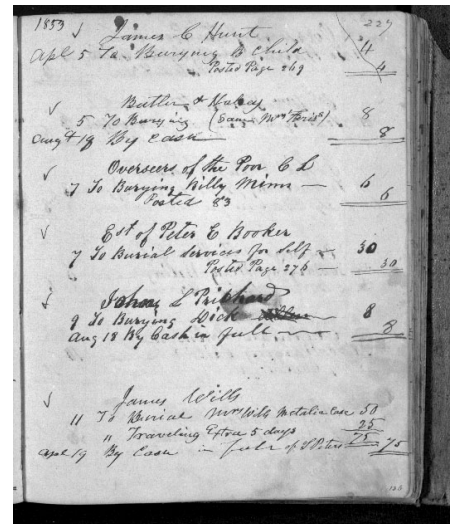 1853 227
James C Hunt
Apl 5 To Burying B Child 4
Posted Page 269 4
Butler &
5 To Burying (Sam Mrs 8
Aug 19 By Cash 8
Overseers of the Poor C L
7 To Burying Milly Mims 6
Posted 83 6
Est of Peter E Booker
7 To Burial Services for Self 30
Posted Page 276 30
John L Prichard
9 To Burying Dick 8
Aug 18 By Cash in full 8
James Wills
11 To Burial Mrs Wills Metalic Case 50
" Traveling Extra 5 days 25
Apl 19 By Cash in full of 75 75